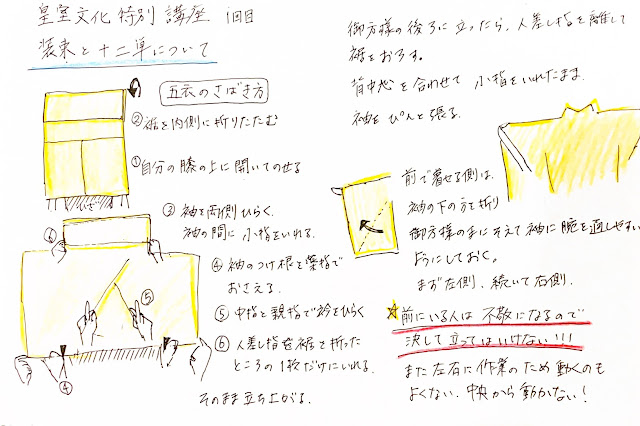 皇室文化特別講座 1回目
装束と十二単について
五衣のさばき方
②裾を内側に折りたたむ
①自分の膝の上に開いてのせる
③袖を両側ひらく、
袖の間に小指をいれる。
④袖のつけ根を薬指で
おさえる。
⑤中指と親指で衿をひらく
⑥人差し指を裾を折った
ところの1枚だけにいれる。
そのまま立ち上がる。
⑥
⑤
④
御方様の後ろに立ったら、人差し指を離して
裾をおろす。
背中心を合わせて 小指をいれたまま、
袖をぴんと張る。
前で着せる側は、
袖の下の方を折り
御方様の手にそえて袖に腕を通しやすい
ようにしておく。
まず左側、続いて右側。
☆前にいる人は 不敬になるので
決して立ってはいけない!!!
また左右に作業のため動くのも
よくない。中央から動かない!